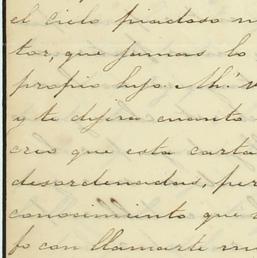 el cielo piadoso
tor, que jamas lo
propio hijo. Ah!
y te dijera cuanto
creo que esta carta
desordenadas, per
conocimiento que
fo con llamarte m